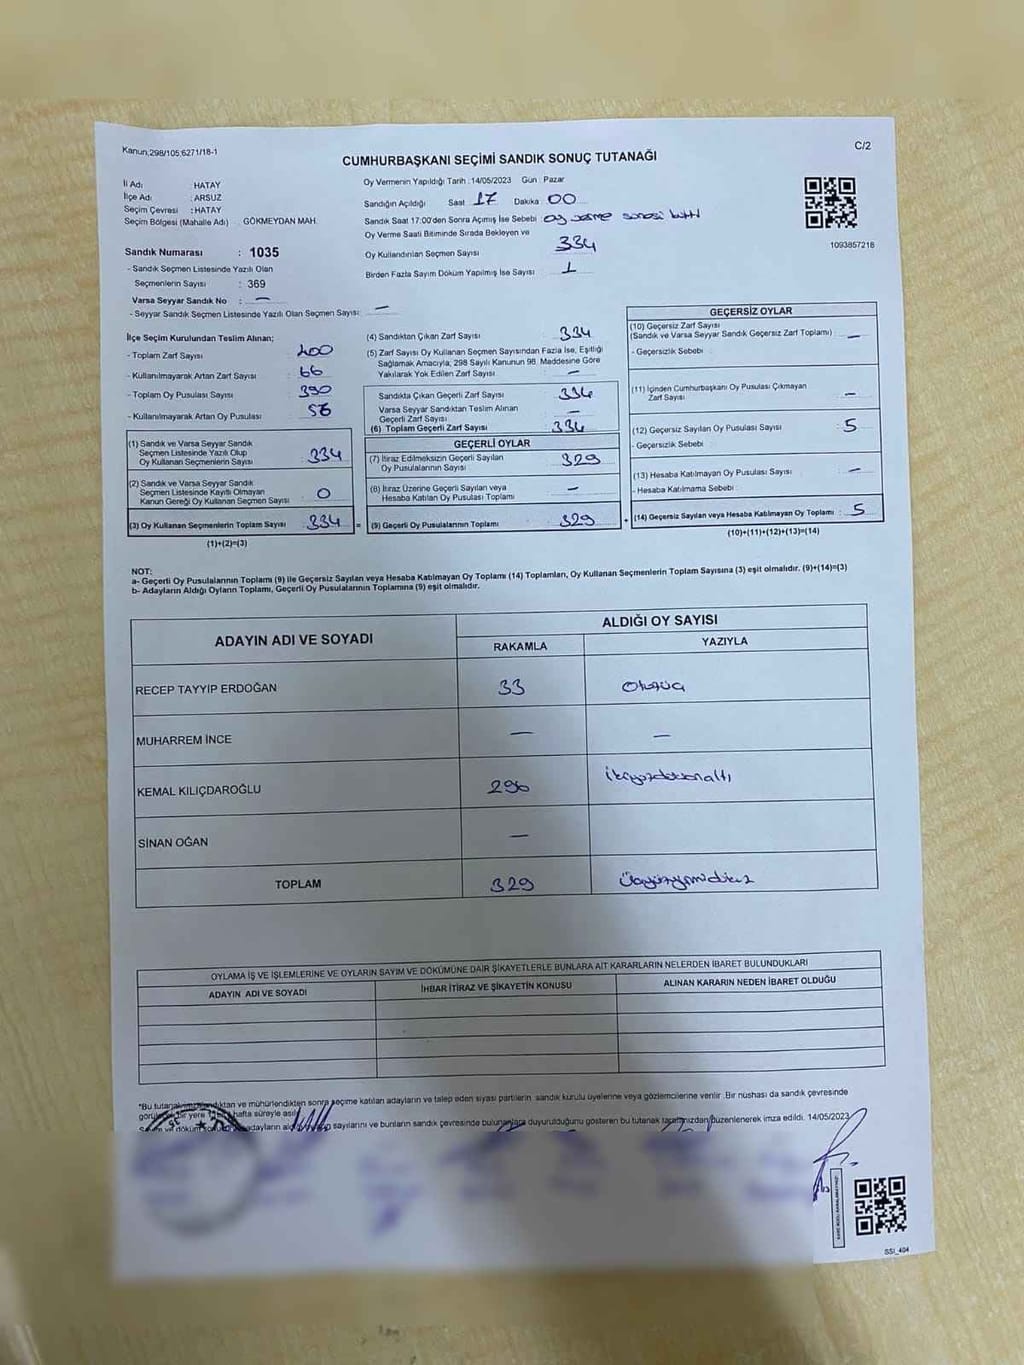 Kanun,298/105;6271/18-1
C/2
CUMHURBAŞKANI SEÇİMİ SANDIK SONUÇ TUTANAĞI
İl Adı : HATAY
İlçe Adı : ARSUZ
Seçim Çevresi : HATAY
Seçim Bölgesi (Mahalle Adı) : GÖKMEYDAN MAH.
Oy Vermenin Yapıldığı Tarih :14/05/2023 Gün : Pazar
Sandığın Açıldığı Saat 17 Dakika 00
Sandık Saat 17:00'den Sonra Açılmış İse Sebebi oy verme süresi bitti
Oy Verme Saati Bitiminde Sırada Bekleyen ve
Oy Kullandırılan Seçmen Sayısı 334
Birden Fazla Sayım Döküm Yapılmış İse Sayısı 1
1093857218
Sandık Numarası : 1035
- Sandık Seçmen Listesinde Yazılı Olan
Seçmenlerin Sayısı : 369
Varsa Seyyar Sandık No : —
- Seyyar Sandık Seçmen Listesinde Yazılı Olan Seçmen Sayısı: —
İlçe Seçim Kurulundan Teslim Alınan;
- Toplam Zarf Sayısı : 400
- Kullanılmayarak Artan Zarf Sayısı : 66
- Toplam Oy Pusulası Sayısı : 390
- Kullanılmayarak Artan Oy Pusulası : 56
(1) Sandık ve Varsa Seyyar Sandık
Seçmen Listesinde Yazılı Olup
Oy Kullanan Seçmenlerin Sayısı : 334
(2) Sandık ve Varsa Seyyar Sandık
Seçmen Listesinde Kayıtlı Olmayan
Kanun Gereği Oy Kullanan Seçmen Sayısı : 0
(3) Oy Kullanan Seçmenlerin Toplam Sayısı : 334 =
(1)+(2)=(3)
(4) Sandıktan Çıkan Zarf Sayısı : 334
(5) Zarf Sayısı Oy Kullanan Seçmen Sayısından Fazla İse, Eşitliği
Sağlamak Amacıyla, 298 Sayılı Kanunun 98. Maddesine Göre
Yakılarak Yok Edilen Zarf Sayısı : —
Sandıkta Çıkan Geçerli Zarf Sayısı : 334
Varsa Seyyar Sandıktan Teslim Alınan
Geçerli Zarf Sayısı : —
(6) Toplam Geçerli Zarf Sayısı : 334
GEÇERLİ OYLAR
(7) İtiraz Edilmeksizin Geçerli Sayılan
Oy Pusulalarının Sayısı : 329
(8) İtiraz Üzerine Geçerli Sayılan veya
Hesaba Katılan Oy Pusulası Toplamı : —
(9) Geçerli Oy Pusulalarının Toplamı : 329 +
GEÇERSİZ OYLAR
(10) Geçersiz Zarf Sayısı
(Sandık ve Varsa Seyyar Sandık Geçersiz Zarf Toplamı) : —
- Geçersizlik Sebebi :
(11) İçinden Cumhurbaşkanı Oy Pusulası Çıkmayan
Zarf Sayısı : —
(12) Geçersiz Sayılan Oy Pusulası Sayısı : 5
- Geçersizlik Sebebi :
(13) Hesaba Katılmayan Oy Pusulası Sayısı : —
- Hesaba Katılmama Sebebi :
(14) Geçersiz Sayılan veya Hesaba Katılmayan Oy Toplamı : 5
(10)+(11)+(12)+(13)=(14)
NOT:
a- Geçerli Oy Pusulalarının Toplamı (9) ile Geçersiz Sayılan veya Hesaba Katılmayan Oy Toplamı (14) Toplamları, Oy Kullanan Seçmenlerin Toplam Sayısına (3) eşit olmalıdır. (9)+(14)=(3)
b- Adayların Aldığı Oyların Toplamı, Geçerli Oy Pusulalarının Toplamına (9) eşit olmalıdır.
ADAYIN ADI VE SOYADI
ALDIĞI OY SAYISI
RAKAMLA
YAZIYLA
RECEP TAYYİP ERDOĞAN 33 Otuzüç
MUHARREM İNCE — —
KEMAL KILIÇDAROĞLU 296 İkiyüzdoksanaltı
SİNAN OĞAN —
TOPLAM 329 Üçyüzyirmidokuz
OYLAMA İŞ VE İŞLEMLERİNE VE OYLARIN SAYIM VE DÖKÜMÜNE DAİR ŞİKAYETLERLE BUNLARA AİT KARARLARIN NELERDEN İBARET BULUNDUKLARI
ADAYIN ADI VE SOYADI
İHBAR İTİRAZ VE ŞİKAYETİN KONUSU
ALINAN KARARIN NEDEN İBARET OLDUĞU
*Bu tutanak sonra seçime katılan adayların ve talep eden siyasi partilerin sandık kurulu üyelerine veya gözlemcilerine verilir .Bir nüshası da sandık çevresinde
bir yere hafta süreyle asılır
sayılarını ve bunların sandık çevresinde duyurulduğunu gösteren bu tutanak tarafımızdan düzenlenerek imza edildi. 14/05/2023
SSI_404